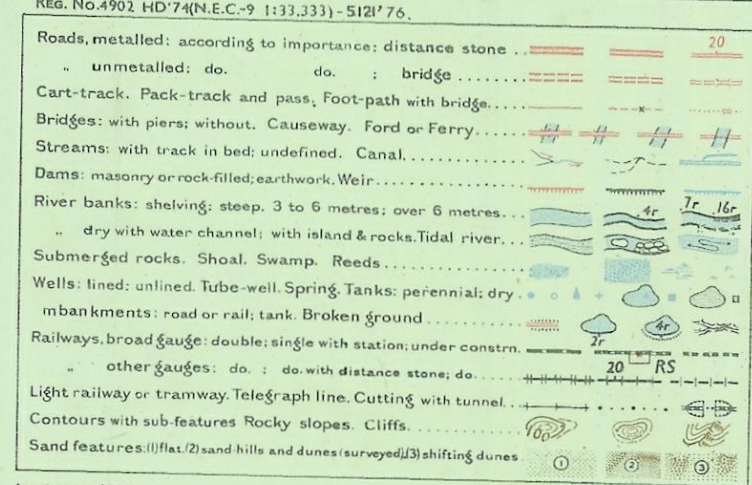 REG. No.4902 HD'74(N.E.C.-9 1:33,333)-5121'76.
Roads, metalled: according to importance: distance stone .. 20
„ unmetalled: do. do. : bridge .......
Cart-track. Pack-track and pass. Foot-path with bridge...
Bridges: with piers; without. Causeway. Ford or Ferry.....
Streams: with track in bed; undefined. Canal.............
Dams: masonry or rock-filled; earthwork. Weir..............
River banks: shelving: steep. 3 to 6 metres; over 6 metres... .4r 7r .16r
„ dry with water channel; with island & rocks. Tidal river...
Submerged rocks. Shoal. Swamp. Reeds ................
Wells: lined: unlined. Tube-well. Spring. Tanks: perennial; dry .
mbankments: road or rail; tank. Broken ground ........... 2r 4r
Railways, broad gauge: double; single with station; under constrn. RS
„ other gauges: do. : do. with distance stone; do..... 20
Light railway or tramway. Telegraph line. Cutting with tunnel...
Contours with sub-features Rocky slopes. Cliffs........... 100
Sand features: (1) flat. (2) sand-hills and dunes (surveyed), (3) shifting dunes 1 2 3